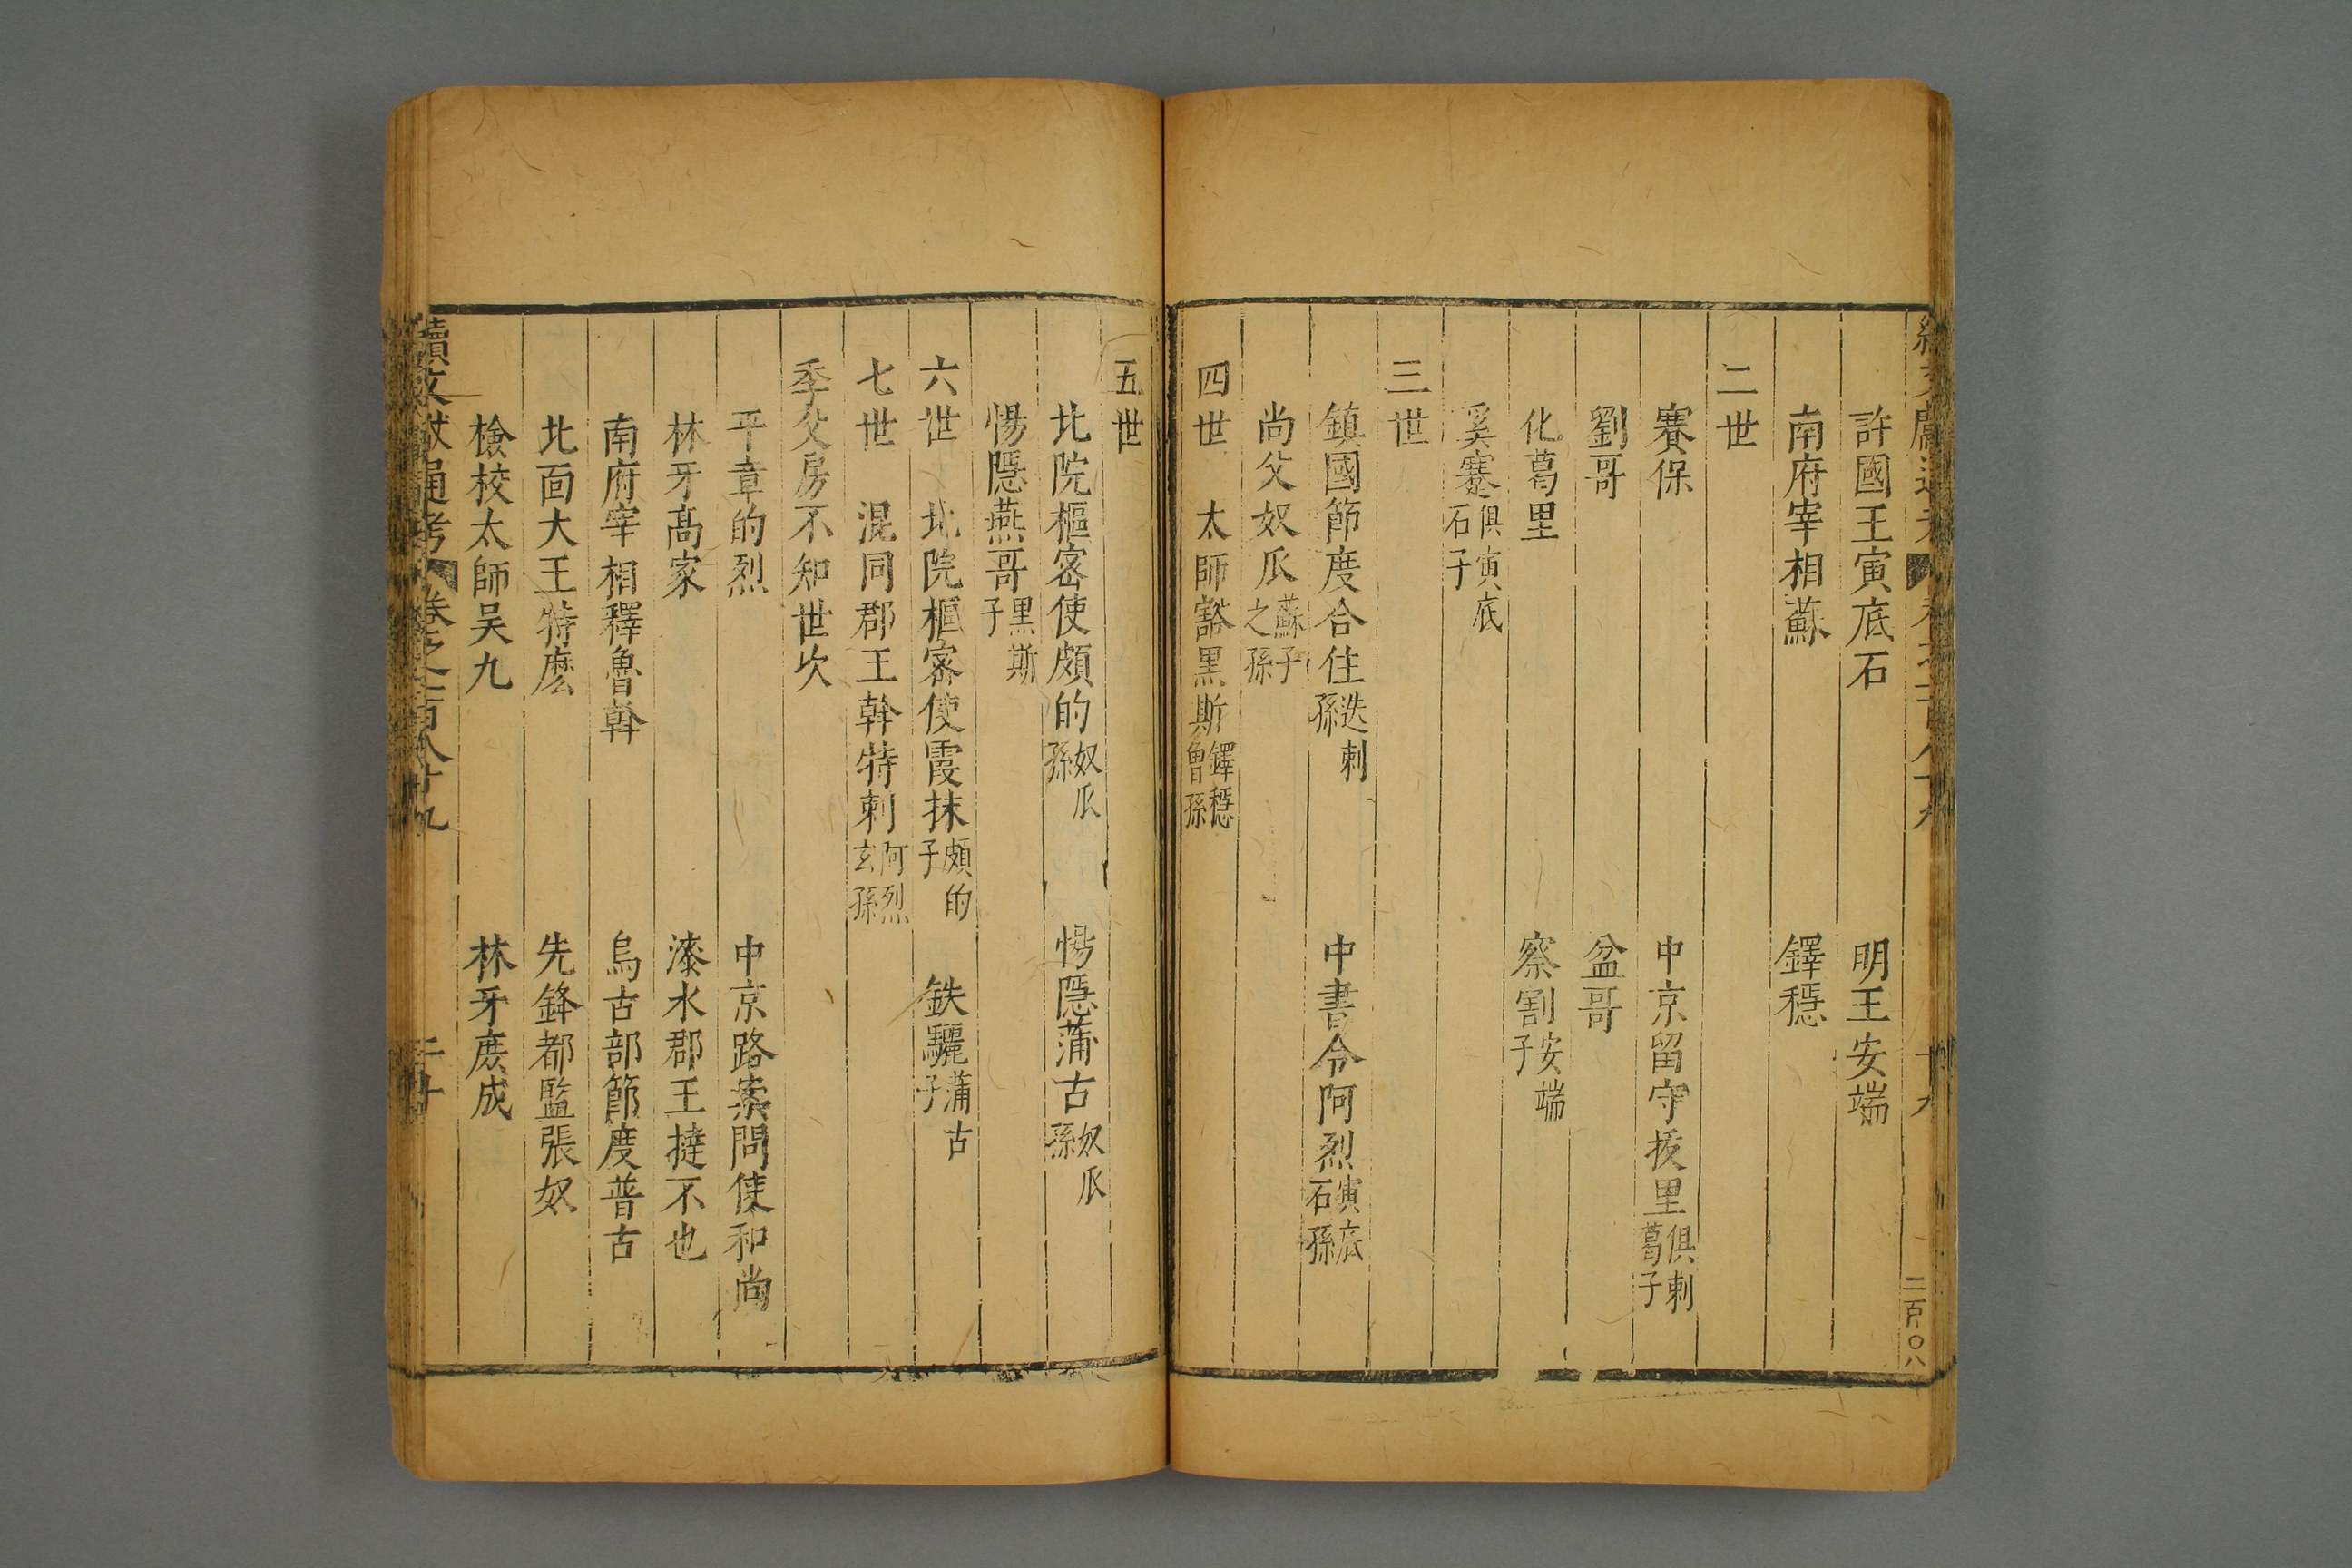 許國王寅底石　明王安端
南府宰相蘇　鐸穩
二世
賽保　中京留守拔里俱剌葛子
劉哥　盆哥
化葛里　察割安端子
奚蹇俱寅底石子
三世
鎮國節度合住迭剌孫　中書令阿烈寅底石孫
尚父奴瓜蘇子之孫
四世　太師豁黑斯鐸穩曾孫
五世
北院樞密使頗的奴瓜孫　惕隱蒲古奴瓜孫
惕隱燕哥黑斯子
六世　北院樞密使霞抹頗的子　鉄驪蒲古子
七世　混同郡王幹特剌阿烈玄孫
季父房不知世次
平章的烈　中京路案問使和尚
林牙高家　漆水郡王撻不也
南府宰相釋魯斡　烏古部節度普古
北面大王特麽　先鋒都監張奴
檢校太師吴九　林牙庶成
續文獻通考　卷之二百八十九　二十
二百〇八